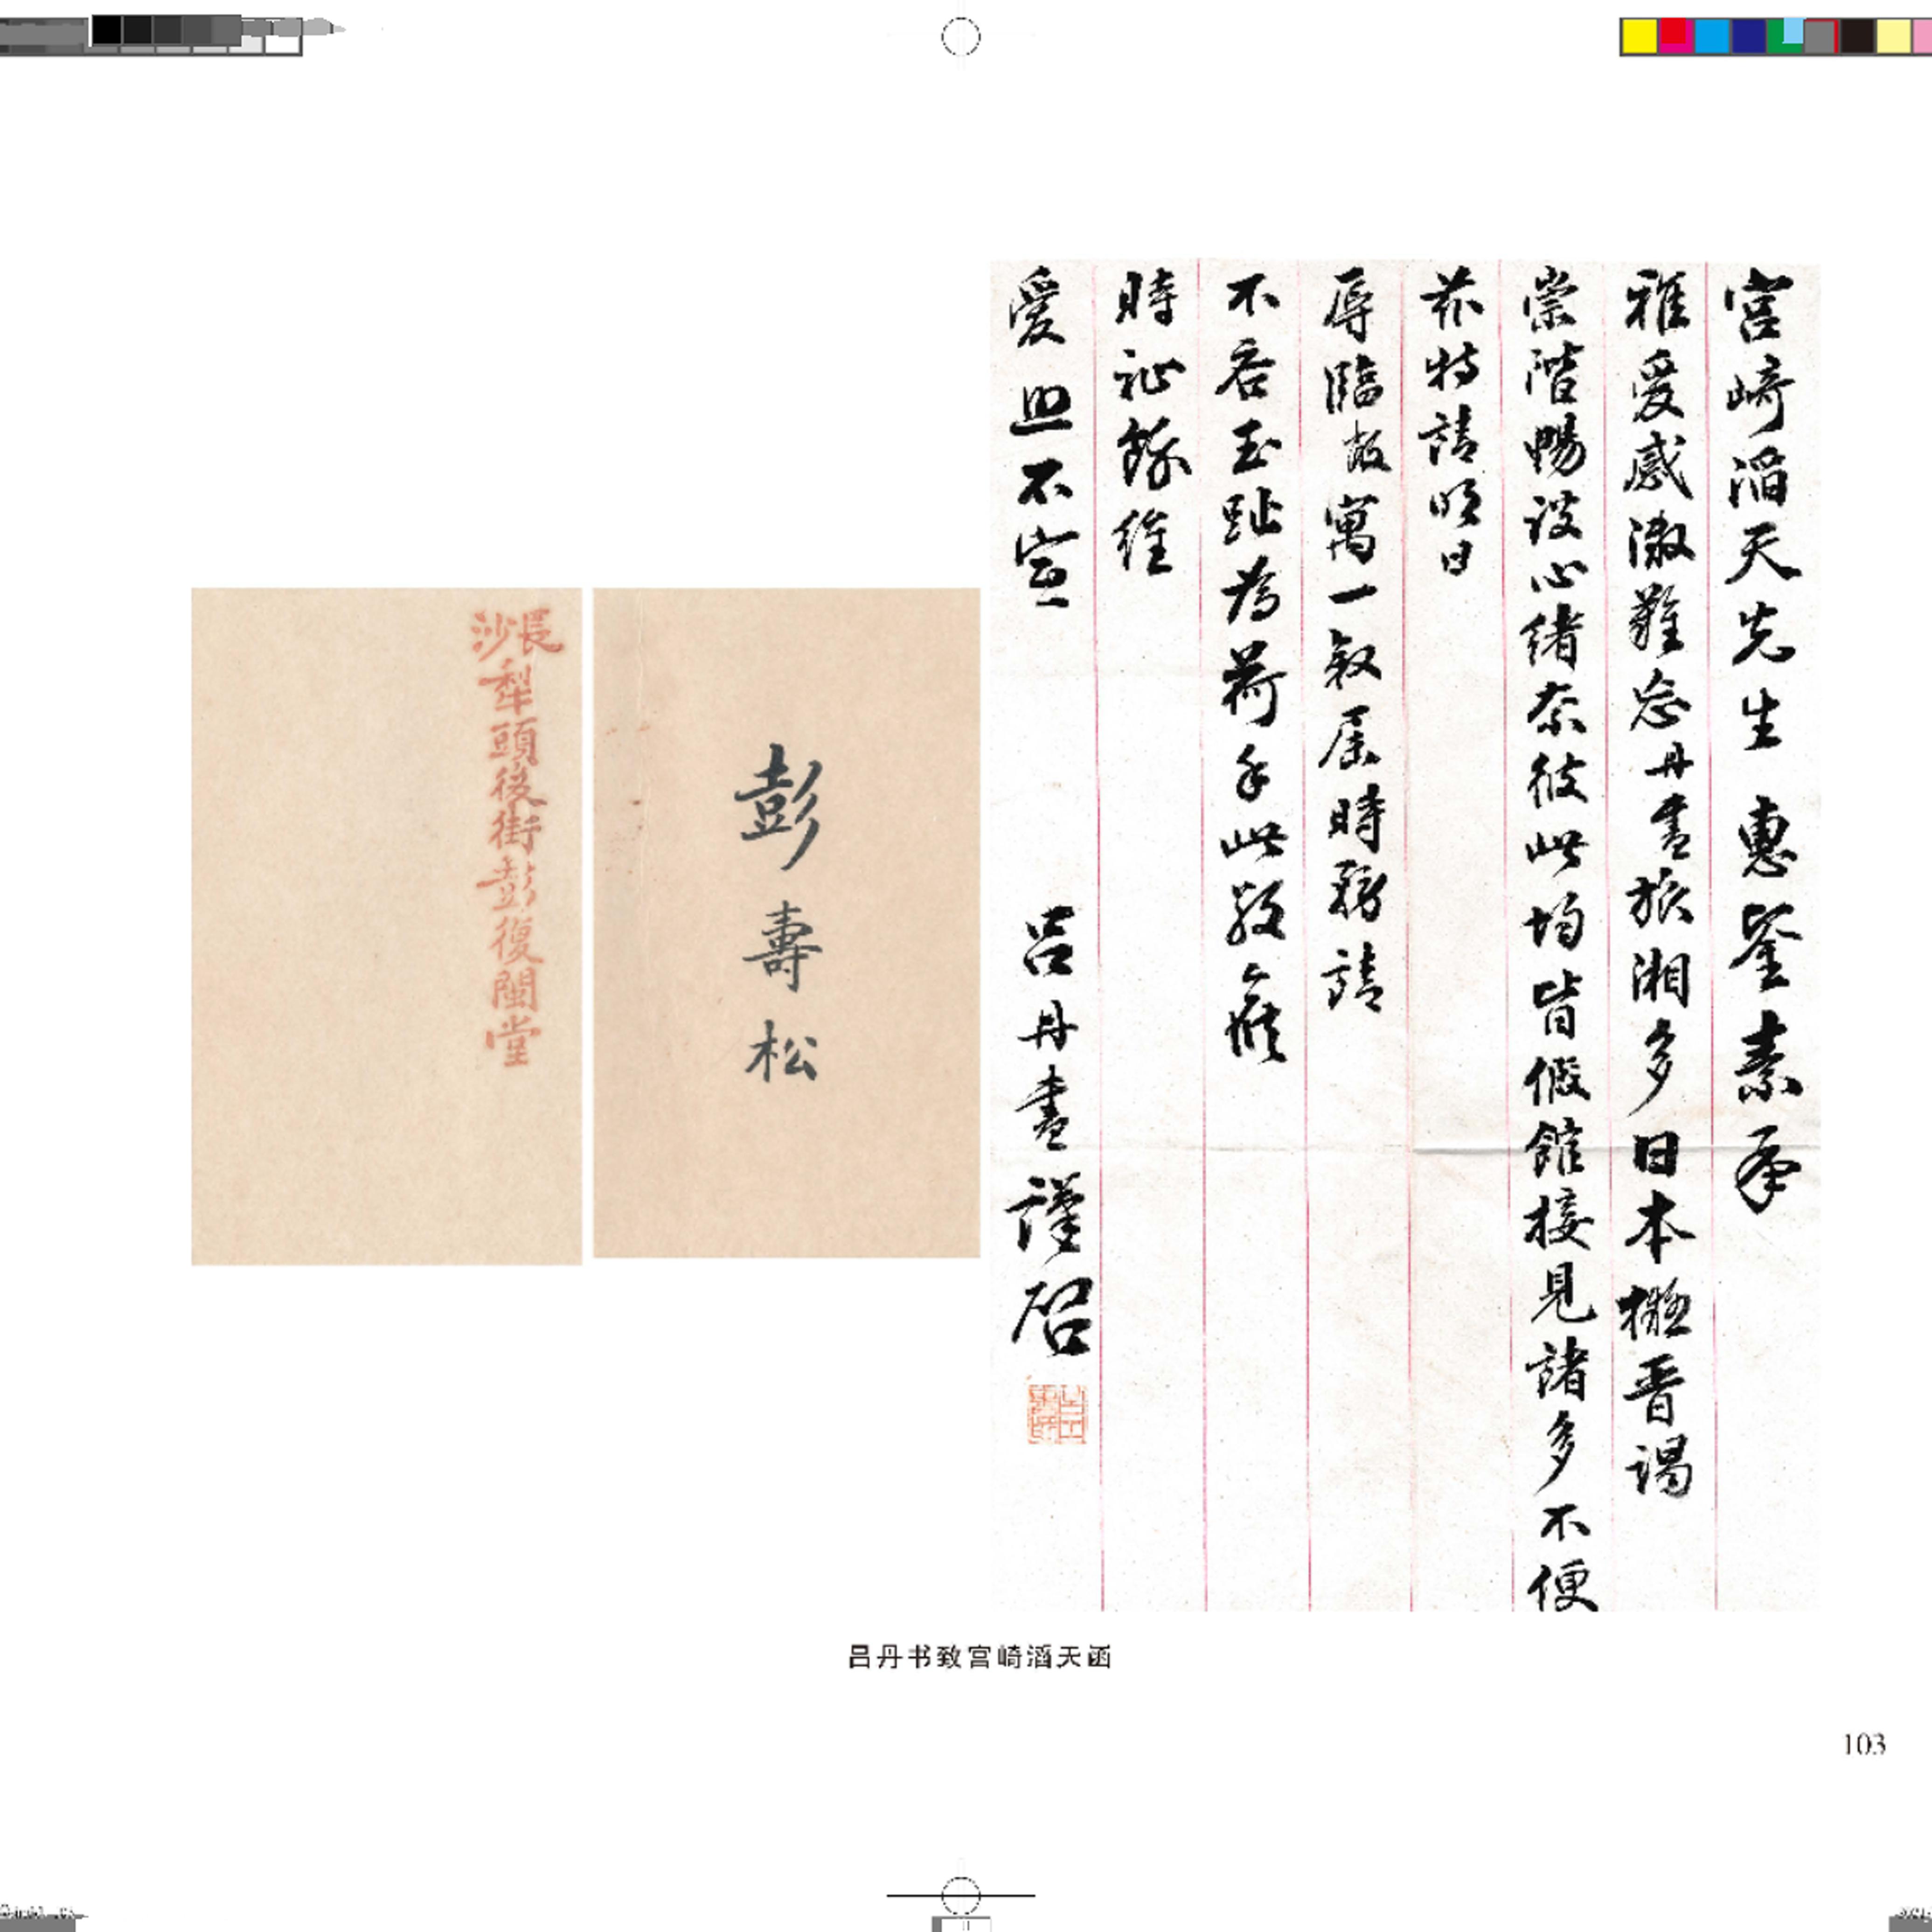 宮崎滔天先生惠鑒素承
雅愛感激難忘丹書旅湘多日本擬晋謁
崇階暢談心緒奈彼此均皆假館接見諸多不便
茲特請明日
辱臨敝寓一叙屆時務請
不吝玉趾為荷手此敬候
時祉餘維
愛照不宣 呂丹書謹啓
彭壽松
長沙犁頭後街彭復閩堂
吕丹书致宫崎滔天函
103